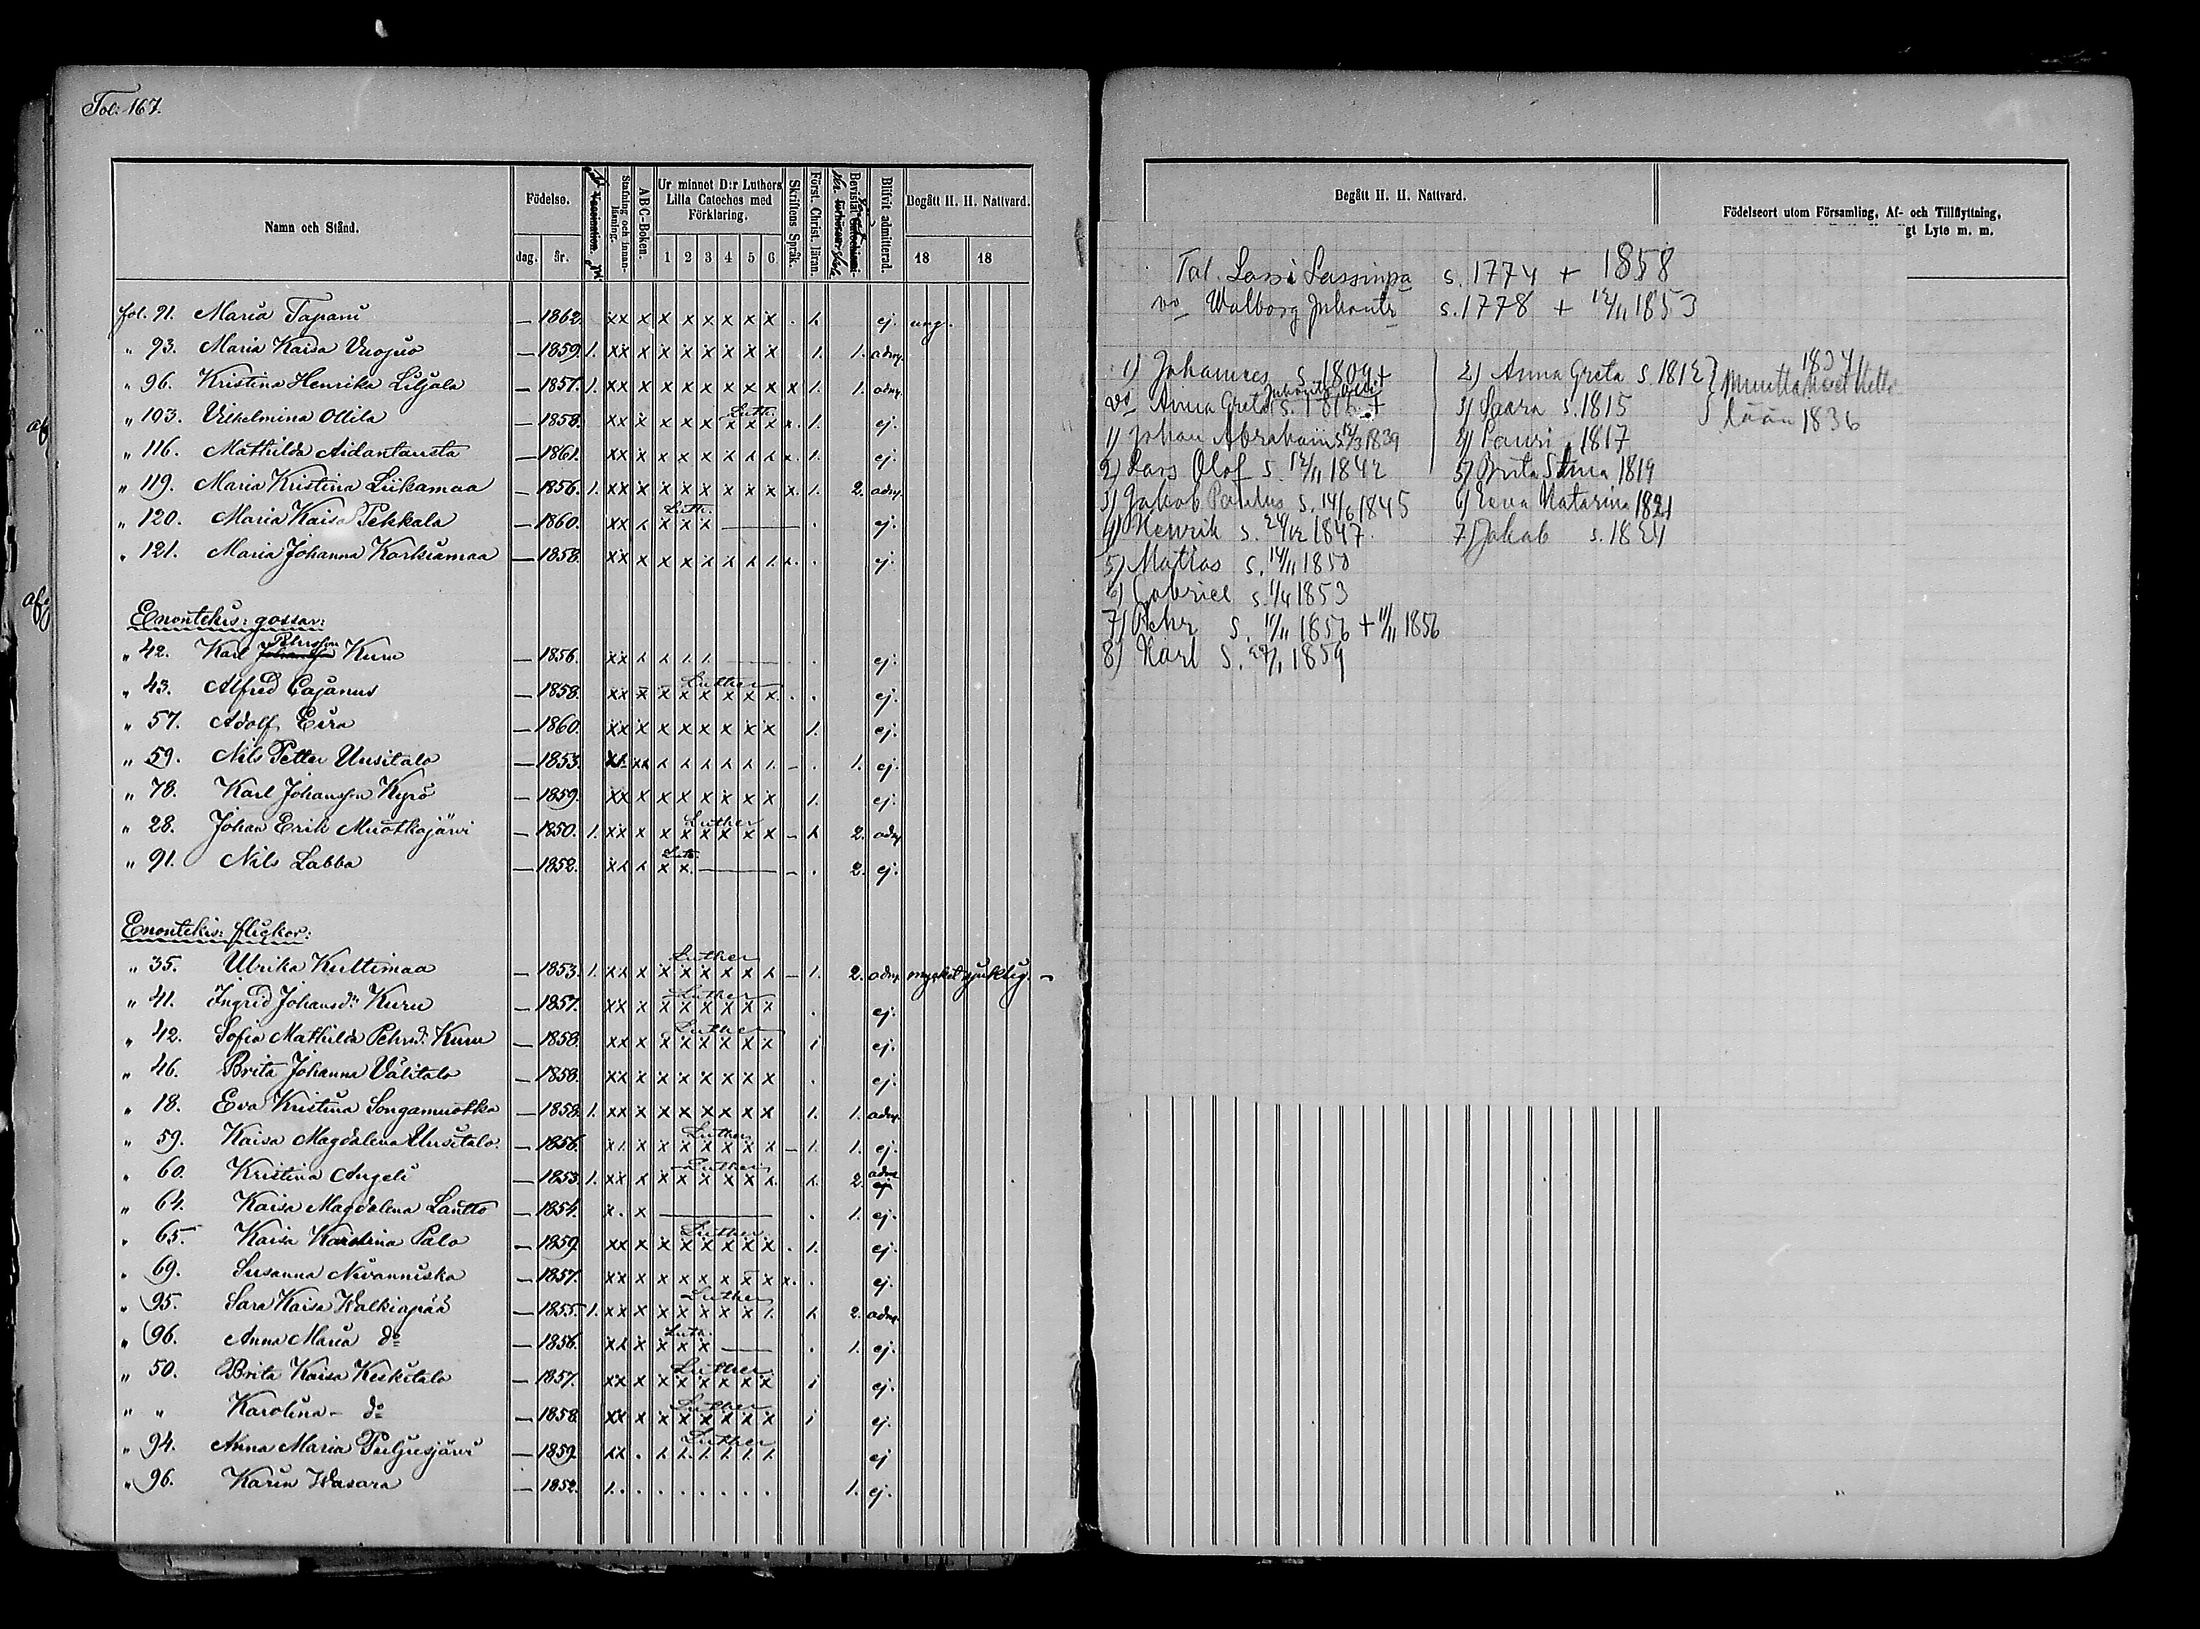 Fol: 167.
Namn och Stånd.
Födelse.
dag.
år.
Vaccination.
Stafning och innan-läsning.
ABC-Boken.
Ur minnet D:r Luthers Lilla Catechos med Förklaring.
1 2 3 4 5 6
Skriftens Språk.
Först. Christ. läran.
Blifvit admitterad.
Begått H. H. Nattvard.
18 18
fol. 91. Maria Tapani — 1862. x x x x x x x x x . ej. ung.
" 93. Maria Kaisa Vuojus — 1859. 1. x x x x x x x x x 1. 1. adm.
" 96. Kristina Henrika Liljala — 1857. 1. x x x x x x x x x x 1. 1. adm.
Luth.
" 103. Vilhelmina Ollila — 1858. x x x x x x x x x x. 1. ej.
" 116. Mathilda Aidantausta — 1861. x x x x x x x x x x. 1. ej.
" 119. Maria Kristina Liikamaa — 1856. 1. x x x x x x x x x x. 1. 2. adm.
Luth.
" 120. Maria Kaisa Pekkala — 1860. x x x x x x — . ej.
" 121. Maria Johanna Korkiamaa — 1858. x x x x x x x x x x. . ej.
Enontekis: gossar:
Pehrsson
" 42. Karl Johansson Kuru — 1856. ej.
Luther
" 43. Alfred Cajanus — 1858. x x x x x x x x x . . ej.
" 57. Adolf Eira — 1860. x x x x x x x x x 1. ej.
" 59. Nils Petter Uusitalo — 1853. — . 1. ej.
" 78. Karl Johansson Kyrö — 1859. x x x x x x x x x 1. ej.
Luther
" 28. Johan Erik Muotkajärvi — 1850. 1. x x x x x x x x x — 2. adm
Luth.
" 91. Nils Labba — 1852. x x — — . 2. ej.
Enontekis: flickor:
Luther
" 35. Ulrika Kultimaa — 1853. 1. x x x x x x x x x — 1. 2. adm. mycket sjuklig. —
Luther
" 41. Ingrid Johansd:r Kuru — 1857. x x x x x x x x x . ej.
Luther
" 42. Sofia Mathilda Pehrsd: Kuru — 1858. x x x x x x x x x i ej.
" 46. Brita Johanna Välitalo — 1858. x x x x x x x x x . ej.
" 18. Eva Kristina Songamuotka — 1858. 1. x x x x x x x x x 1. 1. adm.
Luther
" 59. Kaisa Magdalena Uusitalo. — 1856. x x x x x x x x x — 1. 1. ej.
Luther
" 60. Kristina Angeli — 1853. 1. x x x x x x x x x 2. adm ej
" 64. Kaisa Magdalena Lautto — 1854. x . x — . 1. ej.
Luther
" 65. Kaisa Karolina Palo — 1859 x x x x x x x x x . 1. ej.
" 69. Susanna Nivanniska — 1857. x x x x x x x x x x. . ej.
Luther
" 95. Sara Kaisa Walkiapää — 1855. 1. x x x x x x x x 1. 2. adm.
Luth.
" 96. Anna Maria d:o — 1856. x x x x x x — . 1. ej.
Luther
" 50. Brita Kaisa Keskitalo — 1857. x x x x x x x x x i ej.
Luther
" " Karolina — d:o — 1858. x x x x x x x x x i ej.
Luther
" 94. Anna Maria Puljusjärvi — 1859. ej
" 96. Karin Wasara — 1852. 1. . . . . . . . . 1. ej.
Begått H. H. Nattvard.
Födelseort utom Församling, Af- och Tillflyttning,
gt Lyte m. m.
Tal. Lassi Lassinpa s. 1774 + 1858
vo Walborg Juhontr s. 1778 + 12/11 1853
1) Johannes s. 1804 +
vo Anna Greta
1) Johan Abraham 1839
2) Lars Olof s. 12/11 1842
3) Jakob Paulus s. 14/6 1845
4) Henrik s. 24/12 1847.
5) Matias s. 14/11 1850
6) Gabriel s. 1/4 1853
7) Pehr s. 11/11 1856 + 11/11 1856
8) Karl s. 1859
2) Anna Greta s. 1812
3) Saara s. 1815
4) Lauri 1817
5) Brita Stina 1819
6) Eeva Katarina 1821
7) Jakob s. 1824
1834
1836